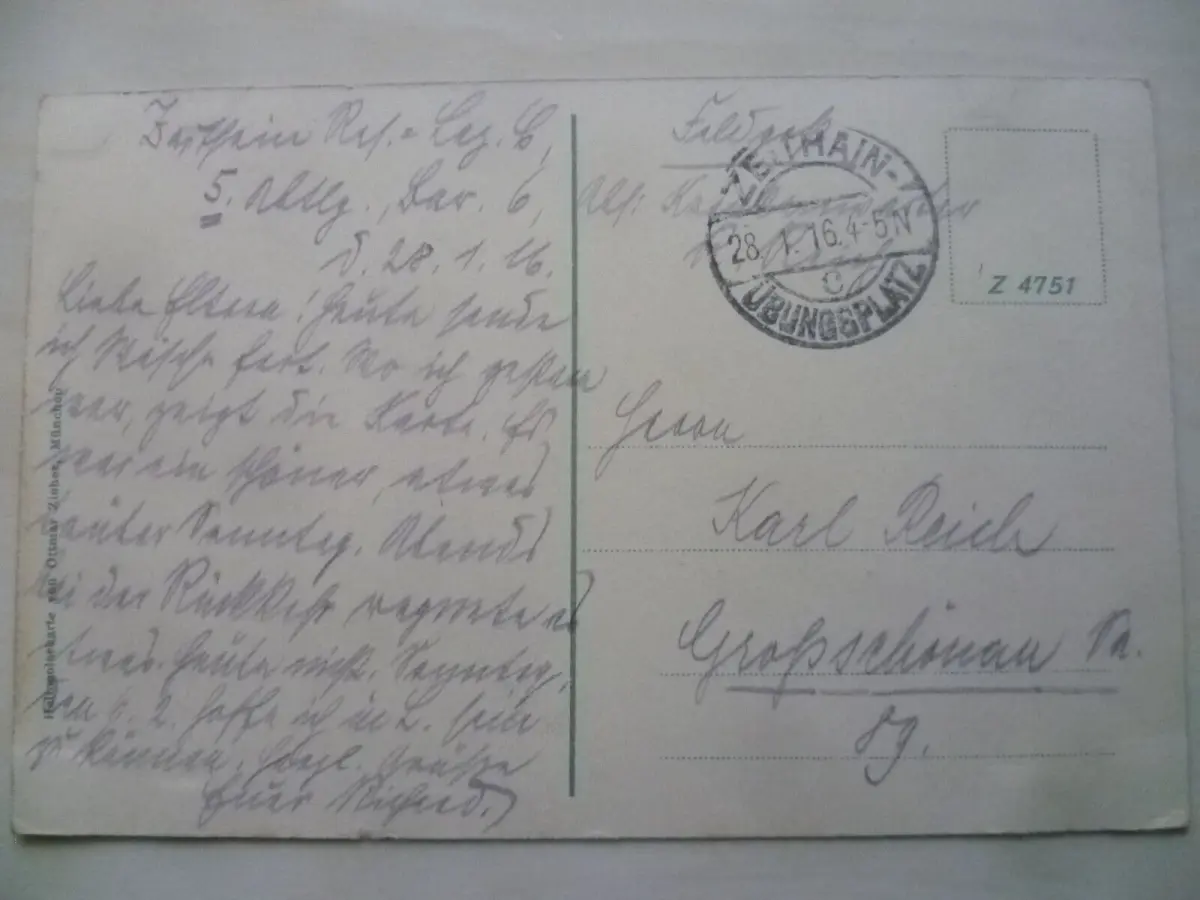 Zeithain Res.-Laz. C,
5. Abtlg., Bar. 6,
d. 28.1.16.
Liebe Eltern! Heute sende
ich Wäsche fort. Wo ich gestern
war, zeigt die Karte. Es
war ein schöner, etwas
Sonntag. Abends
bei der Rückkehr regnete es
etwas. Heute nicht. Sonntag,
den 6.2. hoffe ich in L. sein
zu können. Herzl. Grüße
Euer Richard.
Feldpost
Abs:
ZEITHAIN-
28.1.16.4-5N
c
ÜBUNGSPLATZ
Z 4751
Herrn
Karl Reich
Großschönau Sa.
89.
von Ottmar Zieher, München